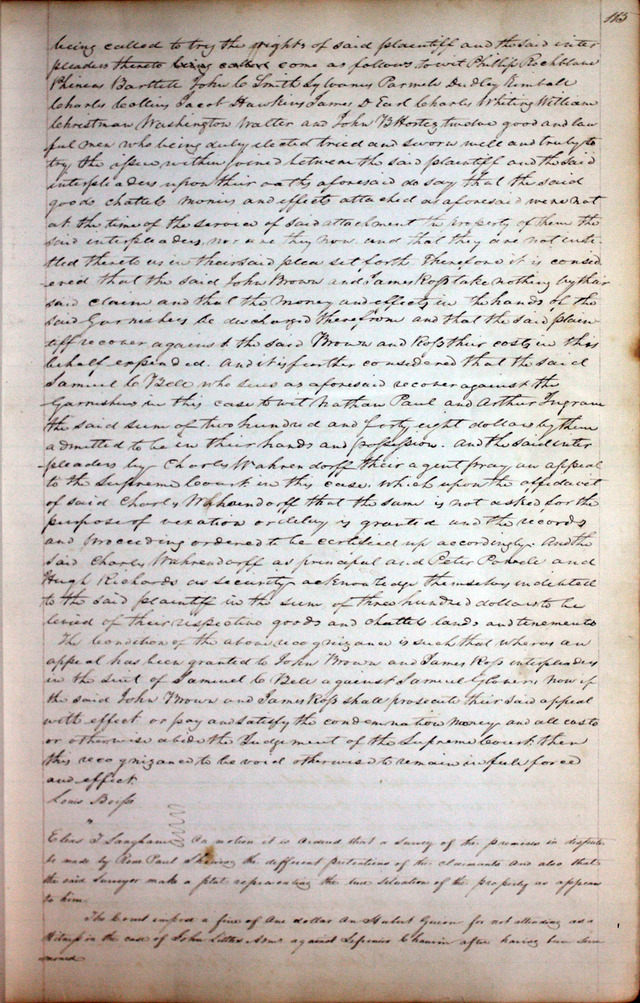 165
being called to try the rights of said plaintiff and the said inter
pleaders thereto being called come as follows to wit Philip Rochblave
Phineas Bartlett John C Smith Sylvanus Parmele Dudley Kimball
Charles Collins Jacob Hawkins James D Earl Charles Whiting William
Christman Washington Walter and John B Hortez twelve good and law
ful men who being duly elected tried and sworn well and truly to
try the issue within joined between the said plaintiff and the said
interpleaders upon their oaths aforesaid do say that the said
goods chatels monies and effects attached as aforesaid were not
at the time of the service of said attachment the property of them the
said interpleaders, nor are they now and that they are not enti-
tled thereto as in their said plea set forth. Therefore it is consid
ered that the said John Brown and James Ross take nothing by their
said claim and that the money and effects in the hands of the
said Garnishees be discharged therefrom and that the said plain
tiff recover against the said Brown and Ross their costs in this
behalf expended. And it is further considered that the said
Samuel C Bell who sues as aforesaid recover against the
Garnishees in this case to wit Nathan Paul and Arthur Ingram
the said sum of two hundred and forty eight dollars by them
admitted to be in their hands and possession. And the said inter
pleaders by Charles Wahrendorff their agent pray an appeal
to the Supreme Court in this case, which upon the affidavit
of said Charles Wahrendorff that the same is not asked for the
purpose of vexation or delay is granted and the records
and proceeding ordered to be certified up accordingly. And the
said Charles Wahrendorff as principal and Peter and
Hugh Richards as security acknowledge themselves indebted
to the said plaintiff in the sum of three hundred dollars to be
levied of their respective goods and chattels lands and tenements
The Condition of the above recognizance is such that whereas an
appeal has been granted to John Brown and James Ross interpleaders
in the suit of Samuel C Bell against Samuel Glovers, now if
the said John Brown and James Ross shall prosecute their said appeal
with effect or pay and satisfy the condemnation money and all costs
or otherwise abide the Judgement of the Supreme Court then
this recognizance to be void otherwise to remain in full force
and effect
Louis
"
Elias T Langham On motion it is ordered that a survey of the premises in dispute
be made by Rene Paul Shewing the different pretentions of the claimants and also that
the said Surveyor make a plat representing the true situation of the property as appears
to him.
The Court imposed a fine of One dollar on Hubert Guion for not attending as a
Witness in the case of John Little's Admr against Lefrenier Chauvin after having been Sum
moned